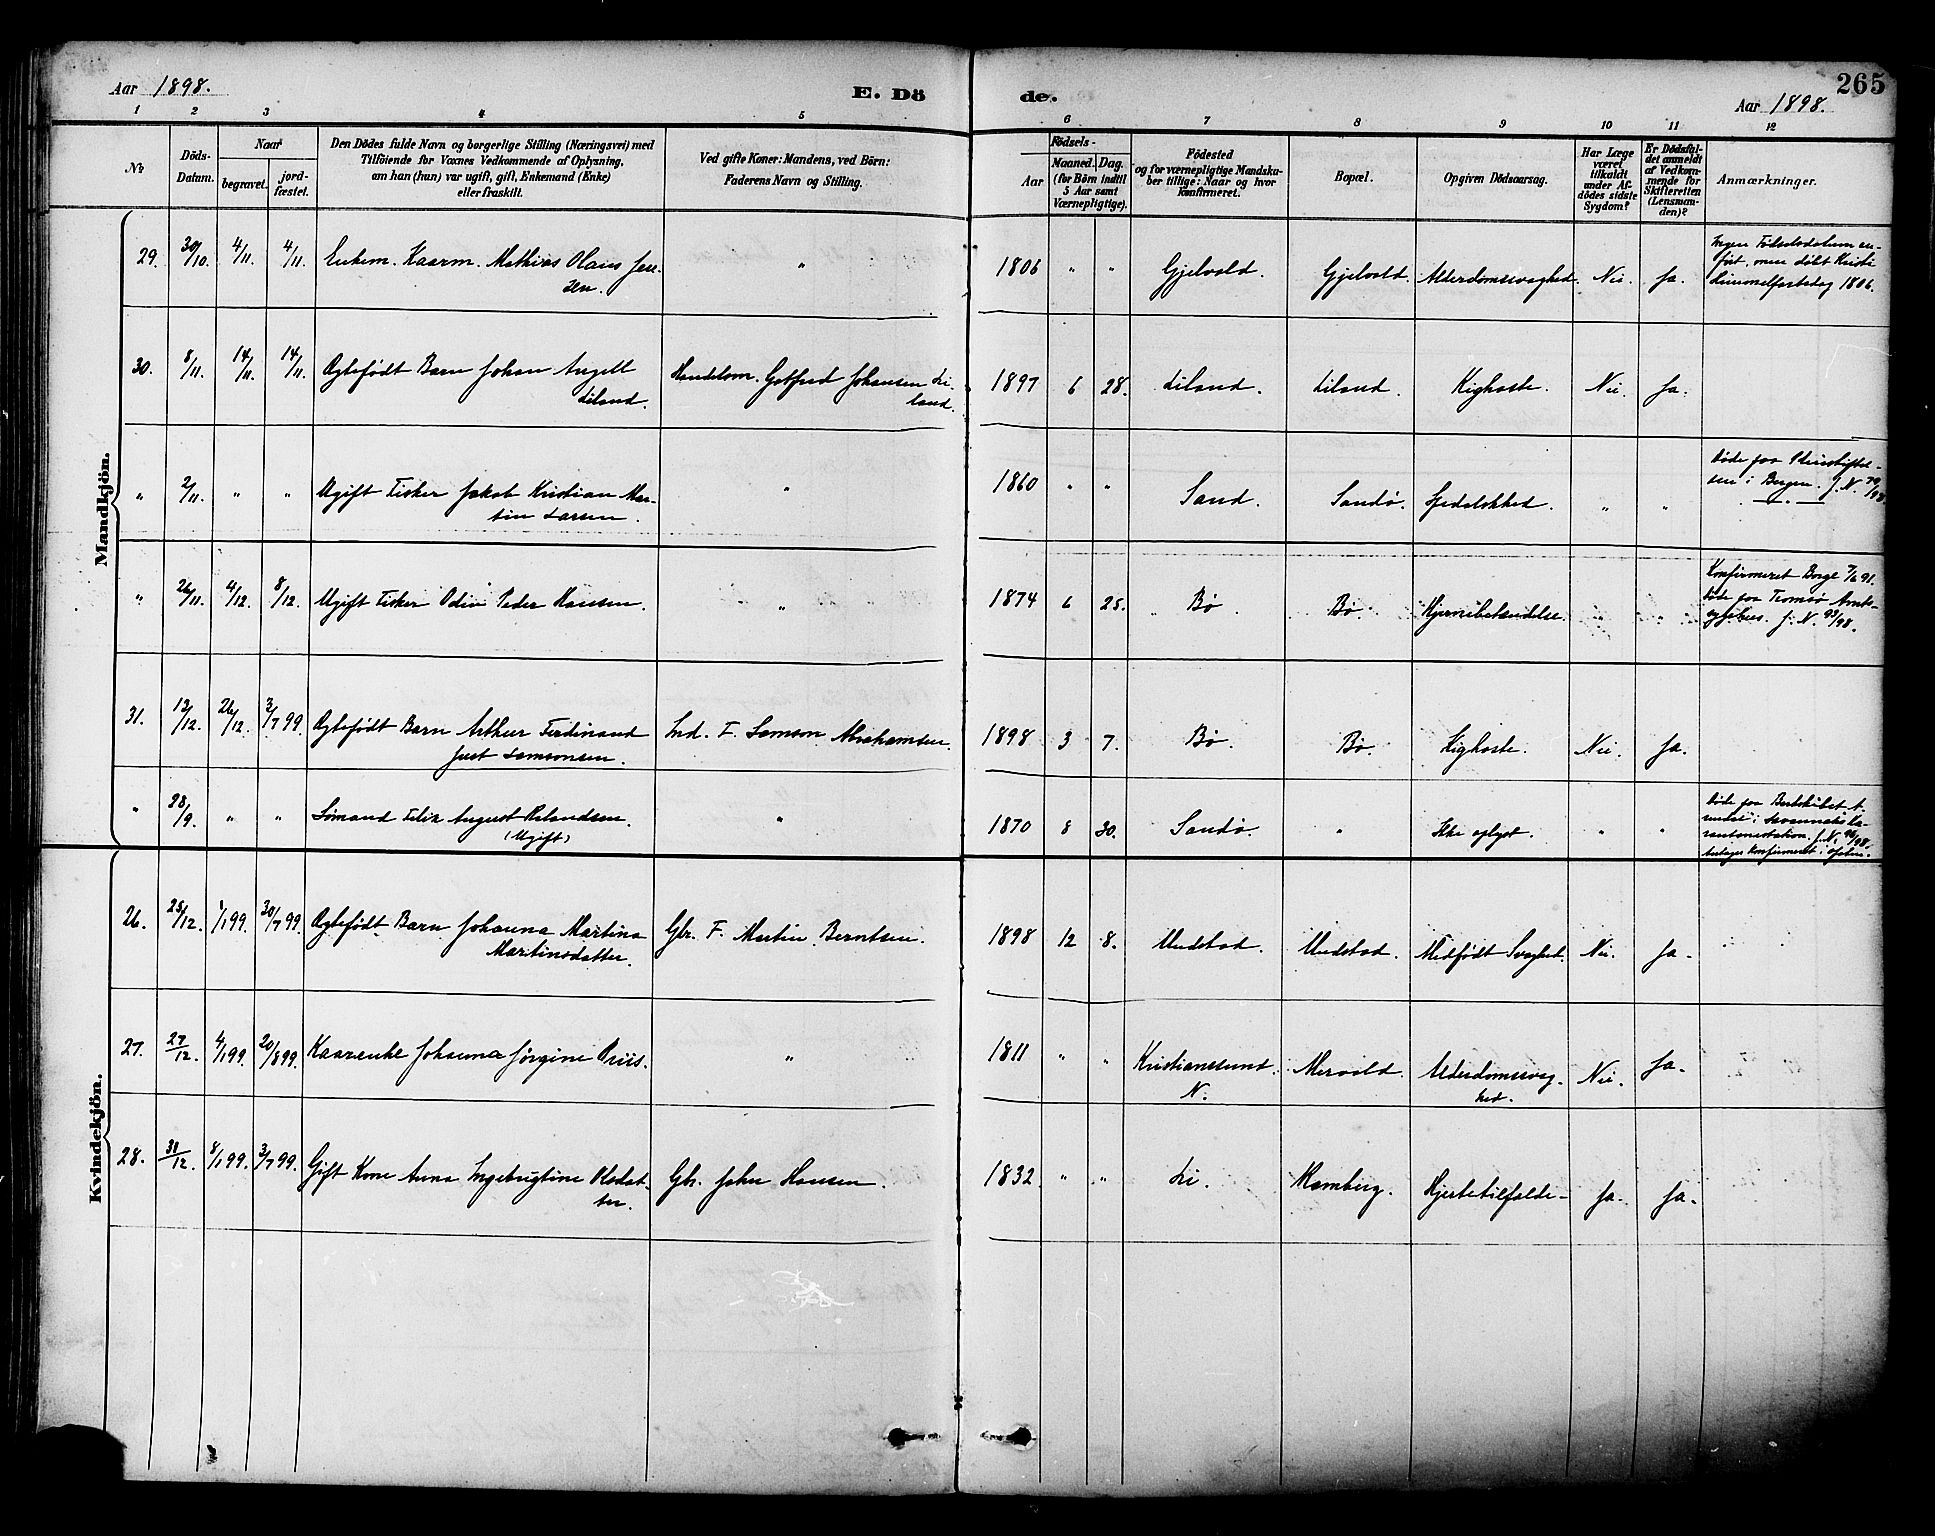 Aar 1898.
E. Dö
de.
265
Aar 1898.
1 2 3 4 5 6 7 8 9 10 11 12
No
Döds-
Datum.
Naar
begravet.
jord-
fæstet.
Den Dödes fulde Navn og borgerlige Stilling (Næringsvei) med
Tilföiende for Voxnes Vedkommende af Oplysning,
om han (hun) var ugift, gift, Enkemand (Enke)
eller fraskilt.
Ved gifte Koner: Mandens, ved Börn:
Faderens Navn og Stilling.
Födsels-
Aar
Maaned. Dag.
(for Börn indtil
5 Aar samt
Værnepligtige).
Födested
og for værnepligtige Mandska-
ber tillige: Naar og hvor
konfirmeret.
Bopæl.
Opgiven Dödsaarsag.
Har Læge
været
tilkaldt
under Af-
dödes sidste
Sygdom?
Er Dödsfal-
det anmeldt
af Vedkom-
mende for
Skifteretten
(Lensman-
den)?
Anmærkninger.
Mandkjön.
29. 30/10. 4/11. 4/11. Enkem. Kaarm. Mathias Olaus Jen-
sen.
" 1806 " " Gjelvold. Gjelvold. Alderdomssvaghed. Nei. Ja.
Ingen Fødselsdatum an-
ført, men døbt Kristi
Himmelfartsdag 1806.
30. 8/11. 14/11. 14/11. Ægtefødt Barn Johan Angell
Liland.
Handelsm. Gotfred Johansen Li-
land.
1897 6 28. Liland. Liland. Kighoste. Nei. Ja.
" 2/11. " " Ugift Fisker Jakob Kristian Mar-
tin Larsen.
" 1860 " " Sand. Sandø. Spedalskhed. " "
Døde paa Pleiestiftel-
sen i Bergen. J. N. 79/98
" 26/11. 4/12. 8/12. Ugift Fisker Odin Peder Hansen.
" 1874 6 25. Bø. Bø. Hjernebetændelse. " "
Konfirmeret Borge 7/6 91.
Døde paa Tromsø Amts-
sygehus. J. N. 93/98.
31. 12/12. 26/12. 3/7 99. Ægtefødt Barn Arthur Ferdinand
Just Samsonsen.
Ind. F. Samson Abrahamsen.
1898 3 7. Bø. Bø. Kighoste. Nei. Ja.
" 28/9. " " Sømand Felix August Relandsen.
(Ugift)
" 1870 8 30. Sandø. " Ikke oplyst. " "
Døde paa
i
J. N. 96/98.
Antages konfirmeret i
Kvindekjön.
26. 25/12. 1/1 99. 30/7 99. Ægtefødt Barn Johanna Martina
Martinsdatter.
Gbr. F. Martin Berntsen.
1898 12 8. Undstad. Undstad. Medfødt Svaghed. Nei. Ja.
27. 27/12. 4/1 99. 20/8 99. Kaarenke Johanna Jørgine Priis.
" 1811 " " Kristianssund. Mervold. Alderdomssvag-
N. hed. Nei. Ja.
28. 31/12. 8/1 99. 3/7 99. Gift Kone Anna Ingebrigtine Olsdat-
ter.
Gbr. John Hansen.
1832 " " Li. Ramberg. Hjertetilfælde. Ja. Ja.